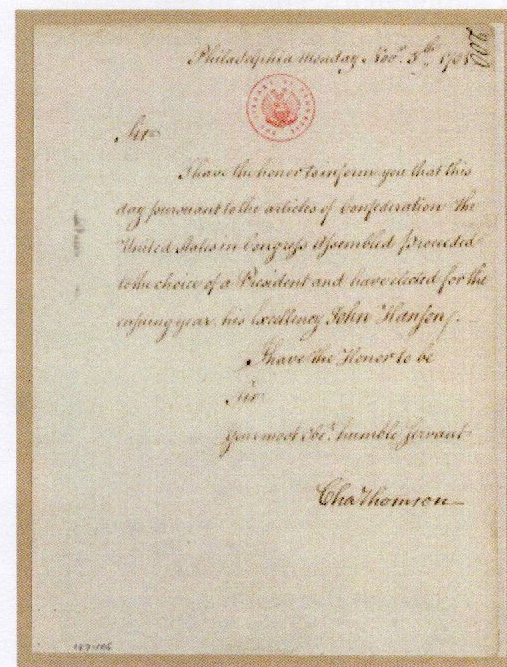 Philadelphia Monday Novr. 5th. 1781
200
THE LIBRARY OF CONGRESS
Sir
I have the honor to inform you that this
day pursuant to the articles of Confederation the
United States in Congress Assembled proceeded
to the choice of a President and have elected for the
ensuing year, his Excellency John Hanson,
I have the Honor to be
Sir
Your most Obet. humble Servant
Cha Thomson